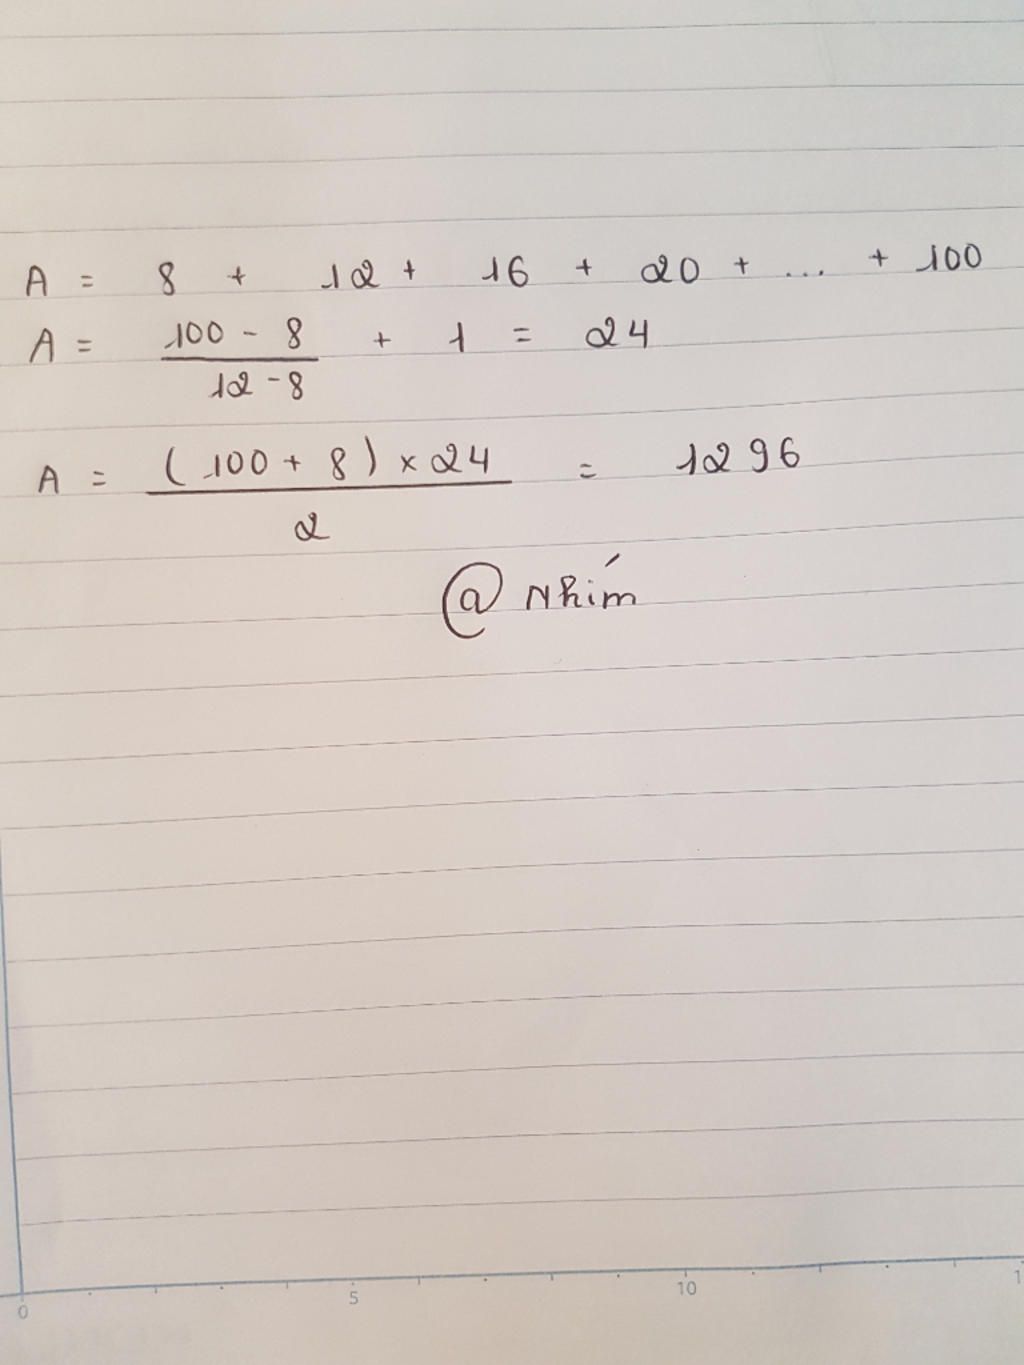 A = 8 + 12 + 16 + 20 + ... + 100
A = (100 - 8)/(12 - 8) + 1 = 24
A = ((100 + 8) × 24)/2 = 1296
@ Nhím
0 5 10